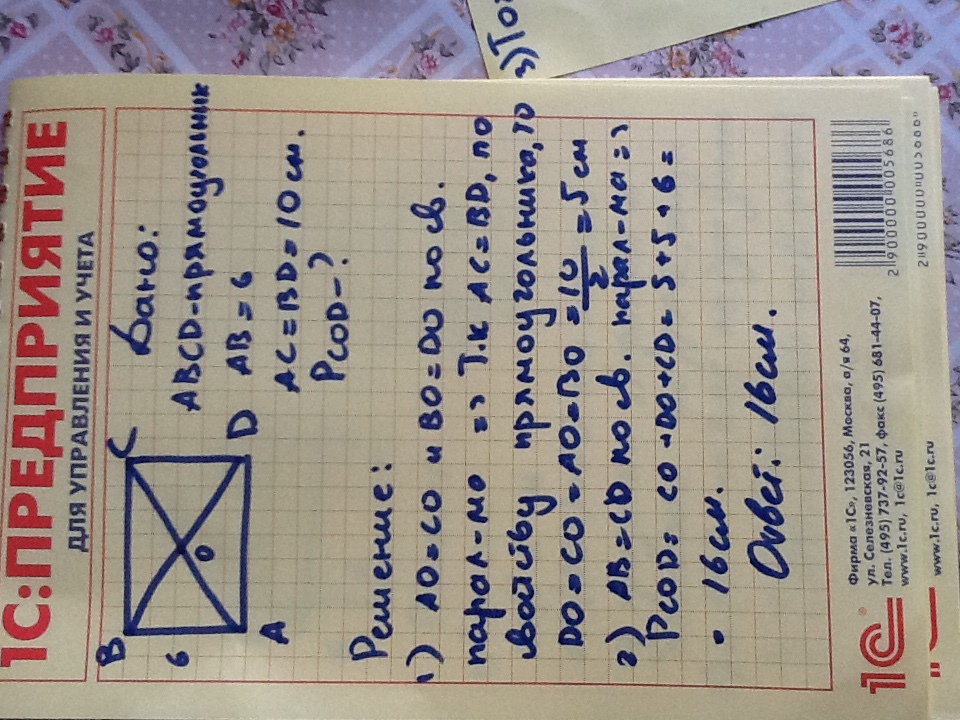 1С:ПРЕДПРИЯТИЕ
ДЛЯ УПРАВЛЕНИЯ И УЧЕТА
B
C
6
O
A
D
Дано:
ABCD-прямоугольник
AB = 6
AC = BD = 10 см.
PCOD - ?
Решение:
1) AO = CO и BO = DO по св.
парал-мо => Т.к AC = BD, по
свойству прямоугольника, то
DO = CO = AO = BO = 10/2 = 5 см
2) AB = CD по св. парал-ма =>
PCOD = CO + DO + CD = 5 + 5 + 6 =
= 16 см.
Ответ: 16 см.
3) То
1С
Фирма «1С», 123056, Москва, а/я 64,
ул. Селезневская, 21
Тел. (495) 737-92-57, факс (495) 681-44-07,
www.1c.ru, 1c@1c.ru
2 900000 005686
www.1c.ru, 1c@1c.ru